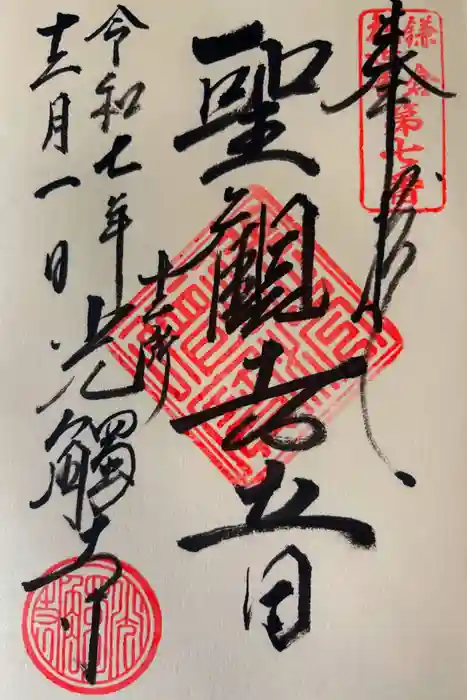 奉拝
鎌倉第七番
聖觀世音
十二所
光觸寺
令和七年
十二月一日